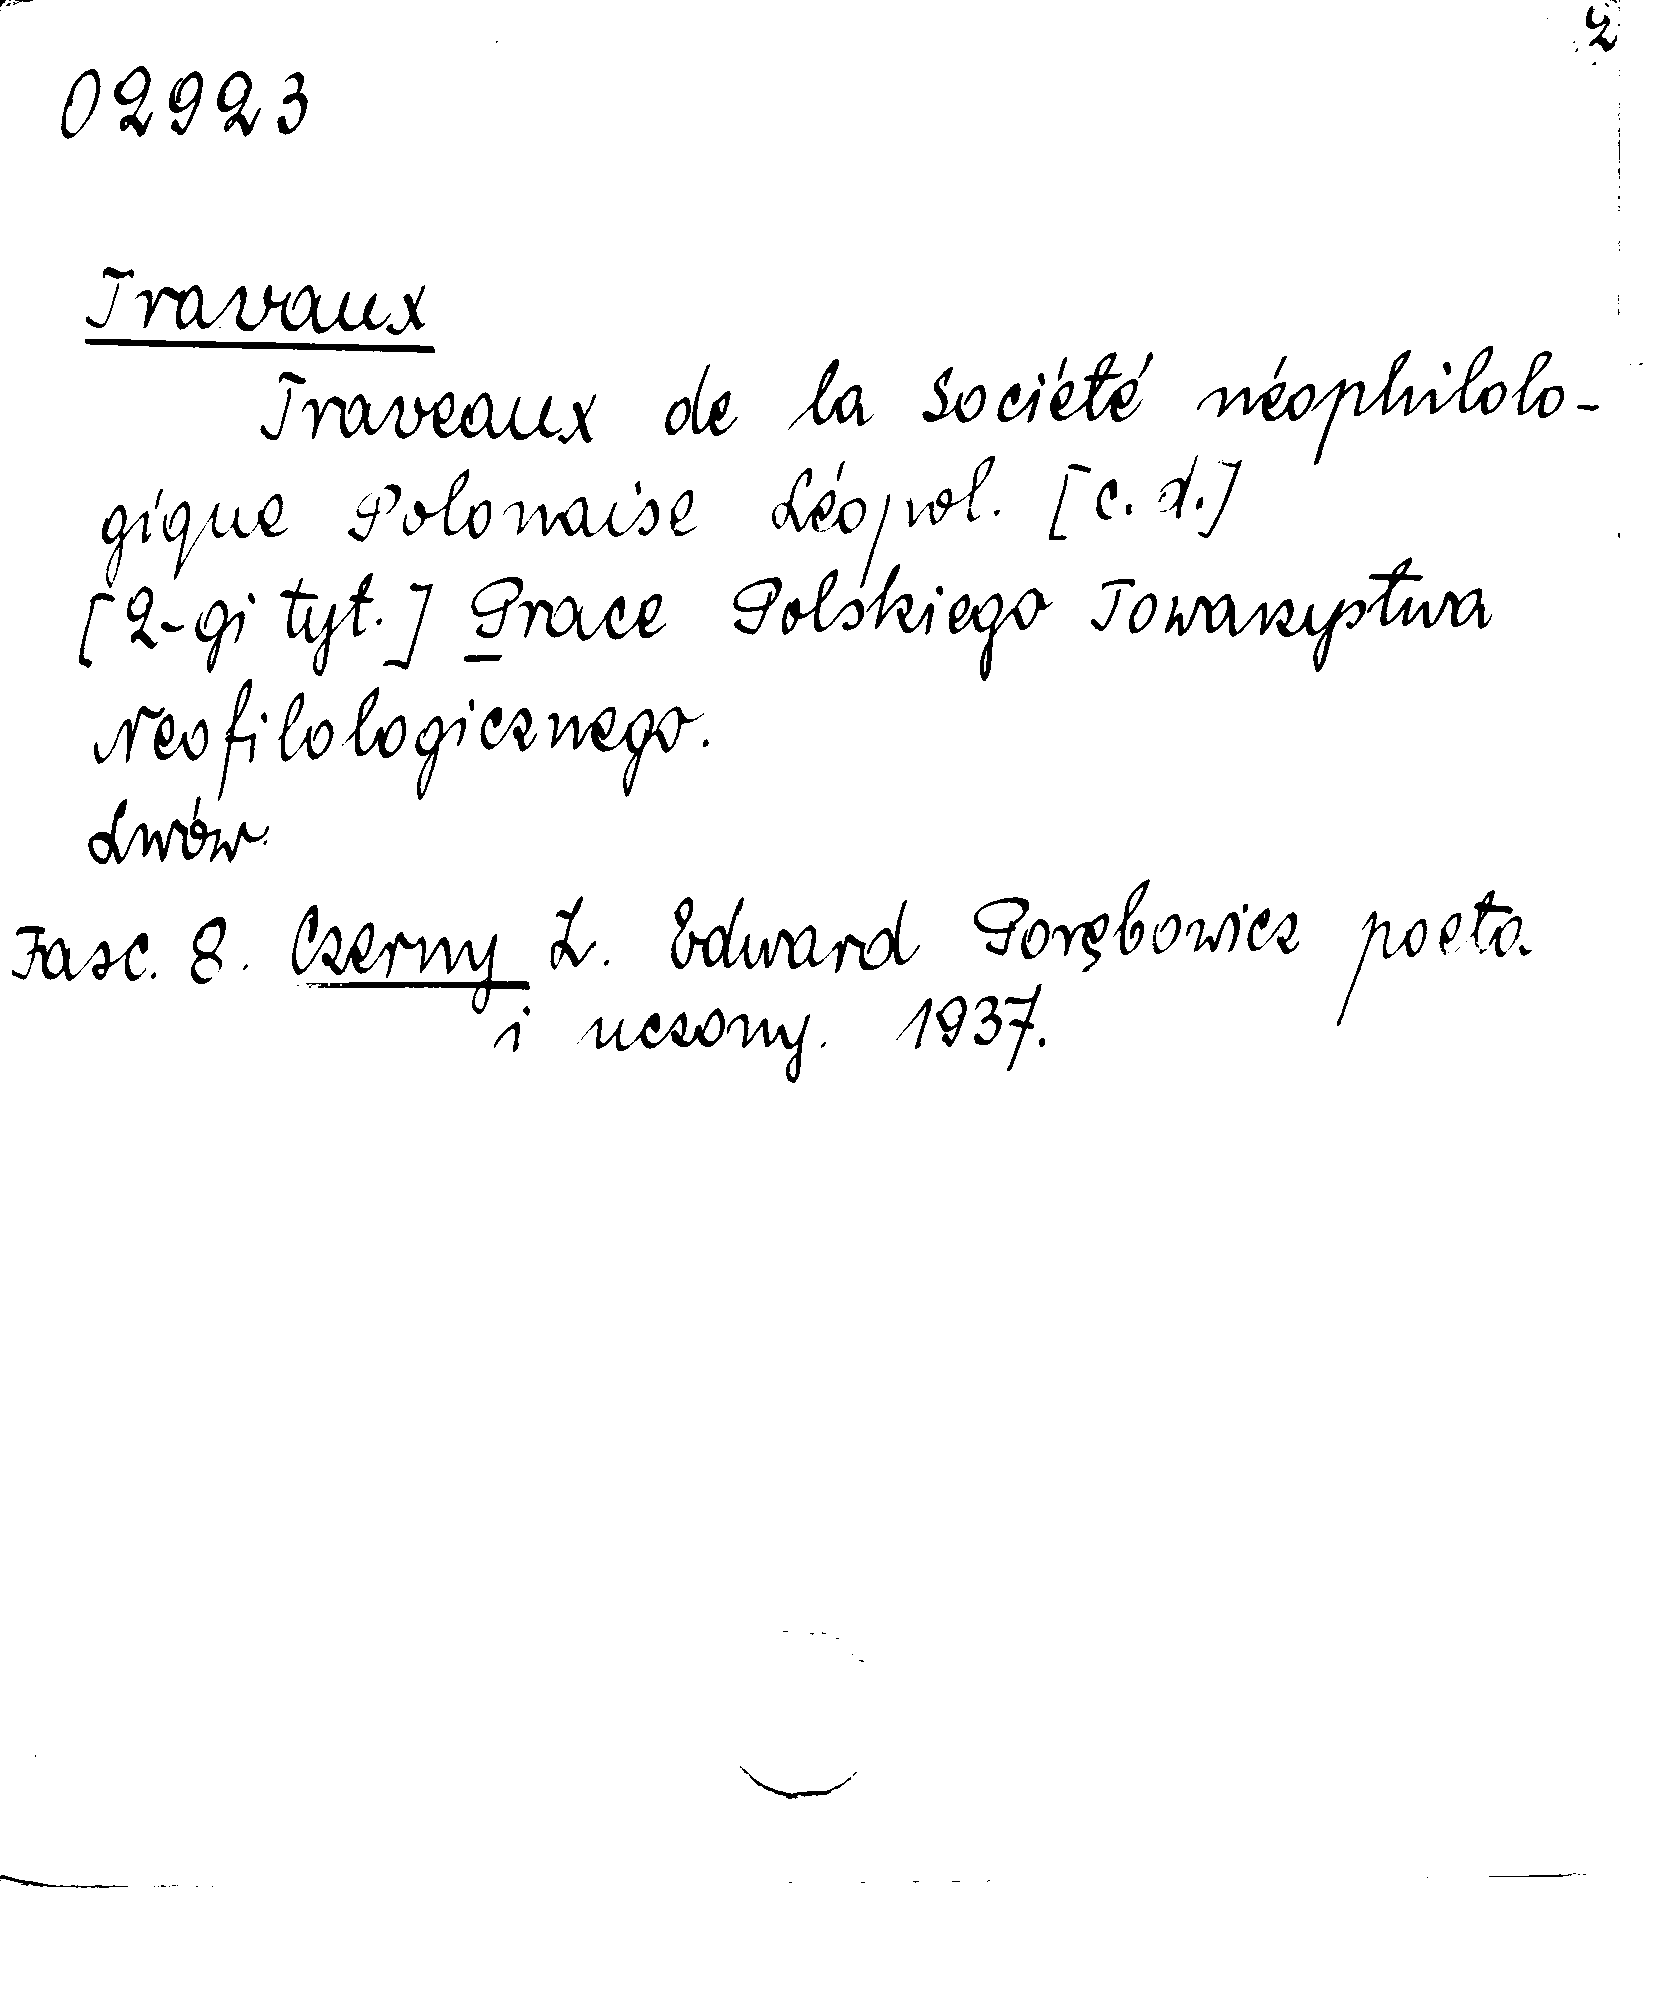 02923
Travaux
Traveaux de la Société néophilolo-
gique Polonaise Léopol. [c. d.]
[2-gi tyt.] Prace Polskiego Towarzystwa
Neofilologicznego.
Lwów
Fasc. 8. Czerny Z. Edward Porębowicz poeta
i uczony. 1937.